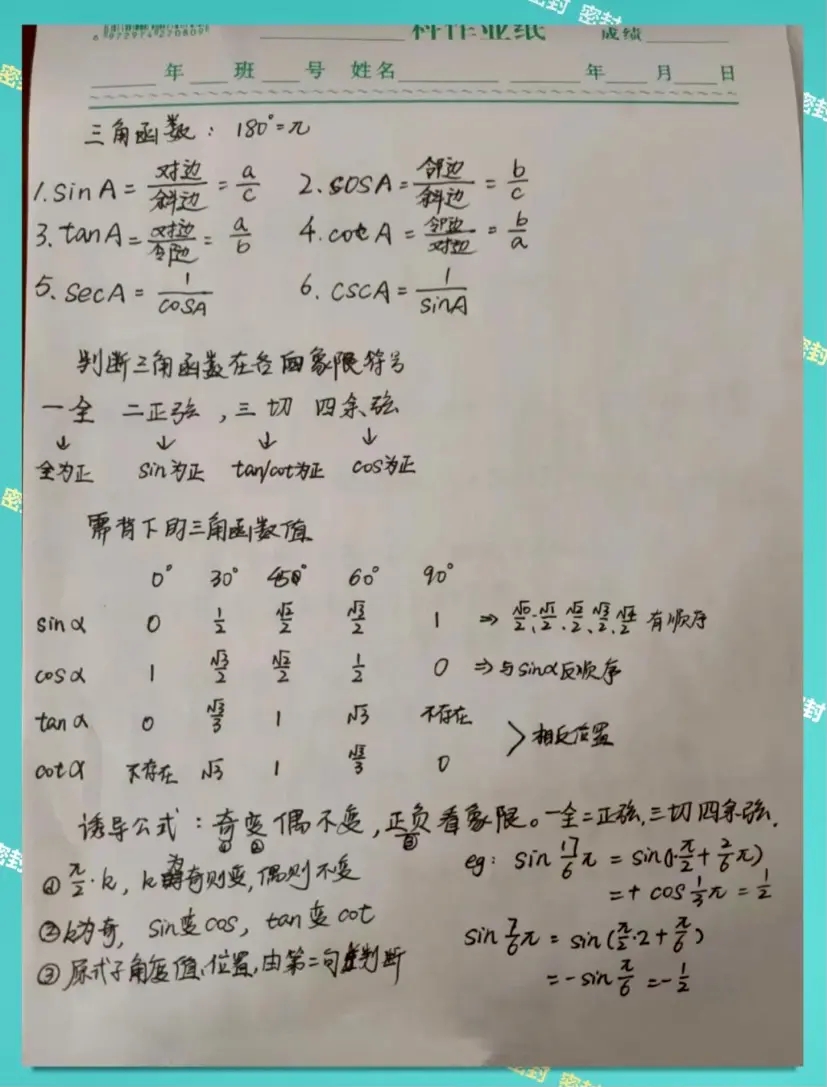 密封 密封
6 972974 220809
科作业纸 成绩
年 班 号 姓名 年 月 日
三角函数: 180°=π
1. sinA = 对边/斜边 = a/c 2. cosA = 邻边/斜边 = b/c
3. tanA = 对边/邻边 = a/b 4. cotA = 邻边/对边 = b/a
5. secA = 1/cosA 6. cscA = 1/sinA
判断三角函数在各四象限符号
一全 二正弦 ,三切 四余弦
↓ ↓ ↓ ↓
全为正 sin为正 tan/cot为正 cos为正
需背下的三角函数值
0° 30° 45° 60° 90°
sinα 0 1/2 √2/2 √3/2 1 ⇒ √0/2、√1/2、√2/2、√3/2、√4/2 有顺序
cosα 1 √3/2 √2/2 1/2 0 ⇒与sinα反顺序
tanα 0 √3/3 1 √3 不存在
>相反位置
cotα 不存在 √3 1 √3/3 0
诱导公式:奇变偶不变,正负看象限。一全二正弦,三切四余弦.
① ② ③
① π/2·k, k为奇则变,偶则不变
②k为奇, sin变cos, tan变cot
③ 原式子角度值、位置,由第二句判断
eg: sin 17/6 π = sin( ·π/2 + 2/6 π)
=+ cos 1/3 π = 1/2
sin 7/6 π = sin(π/2·2+π/6)
=-sin π/6 =-1/2
密封
密封